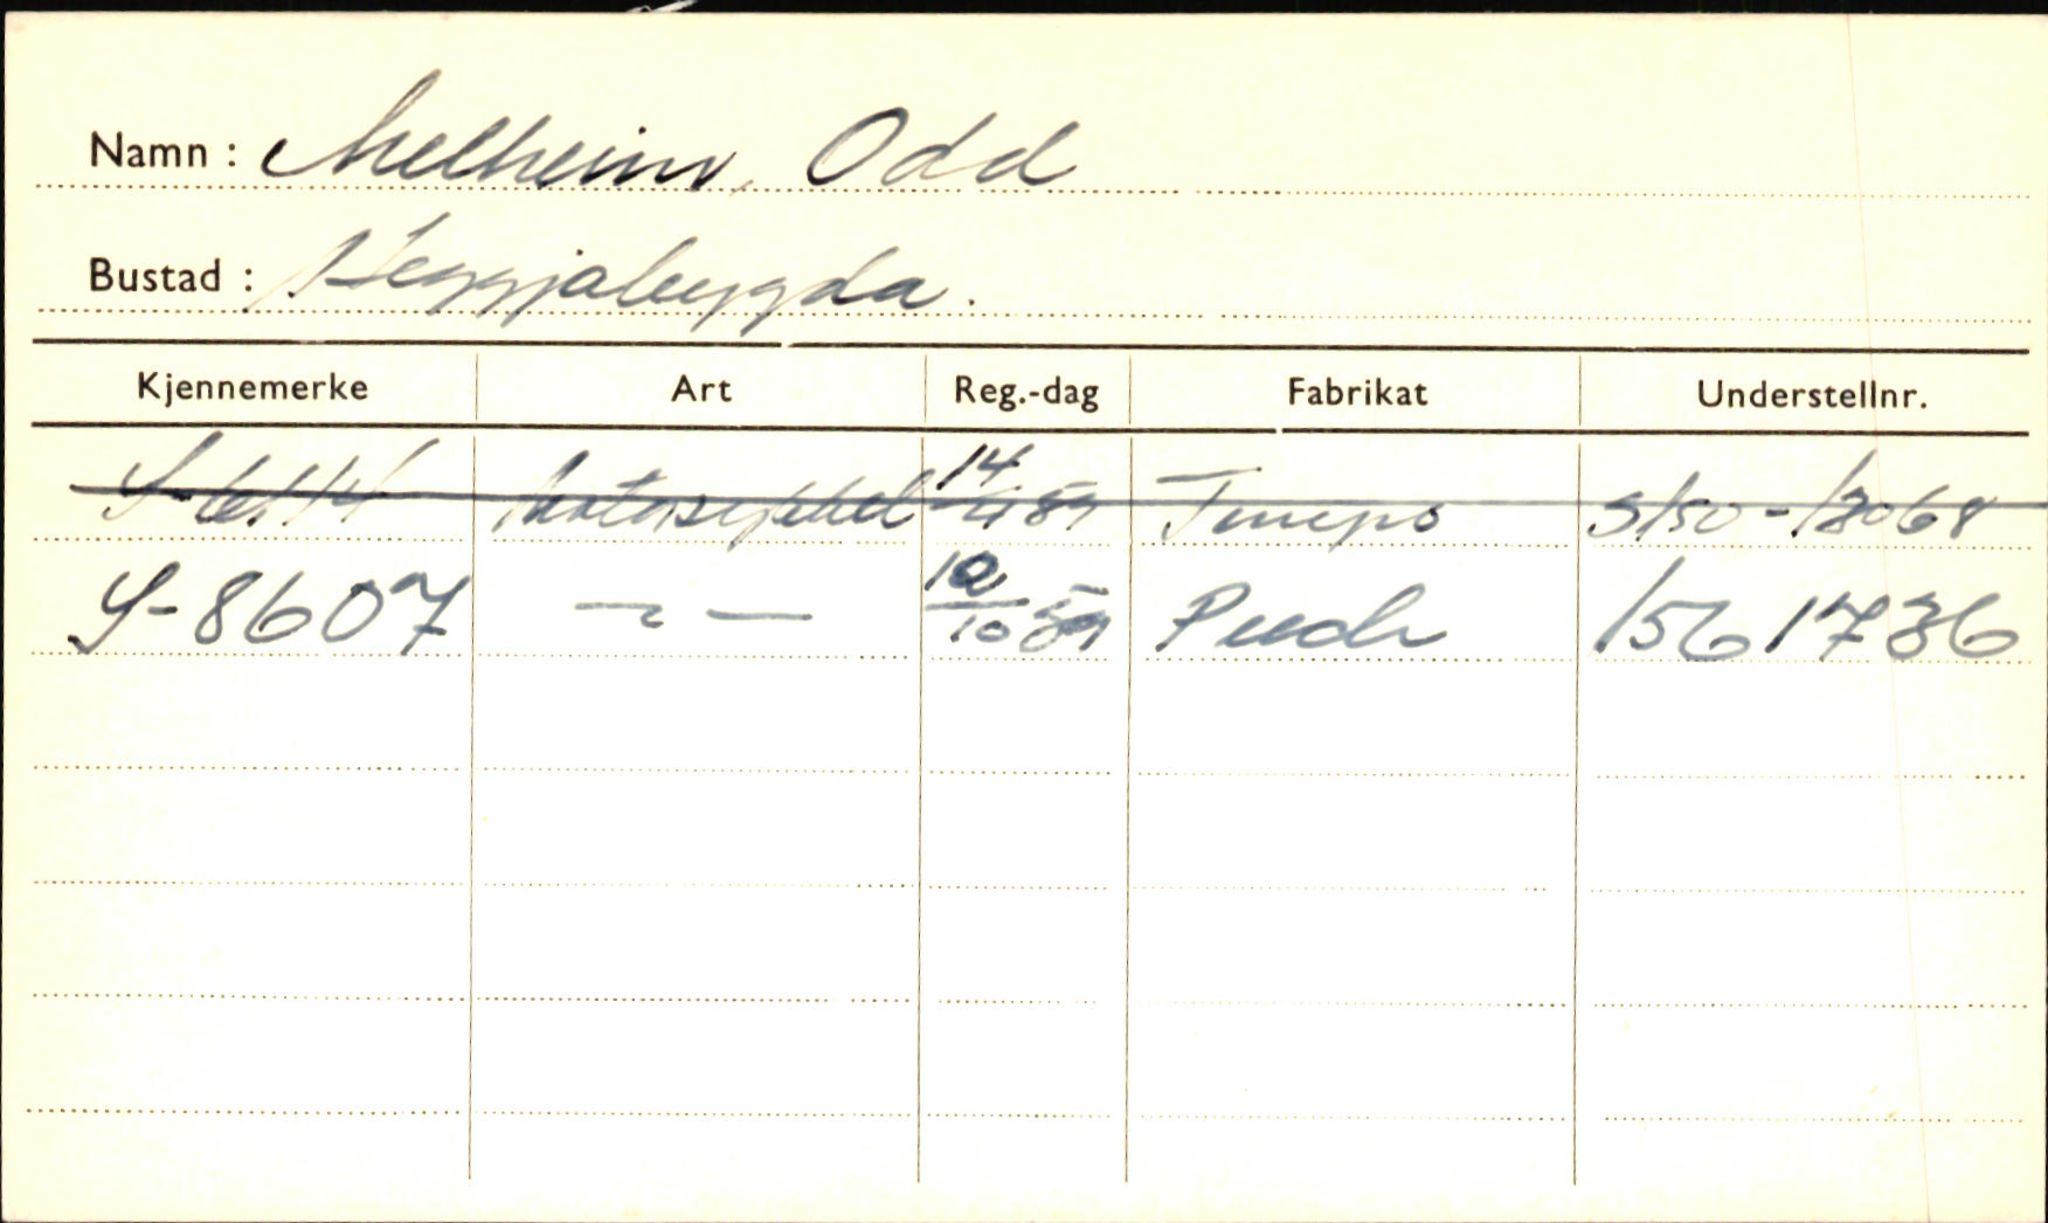 Namn : Melheim, Odd
Bustad : Heggjabygda.
Kjennemerke Art Reg.-dag Fabrikat Understellnr.
Motorsykkel 14/4 59 Tempo 5150-18068
S-8607 — " — 10/10 59 Puch 1561736